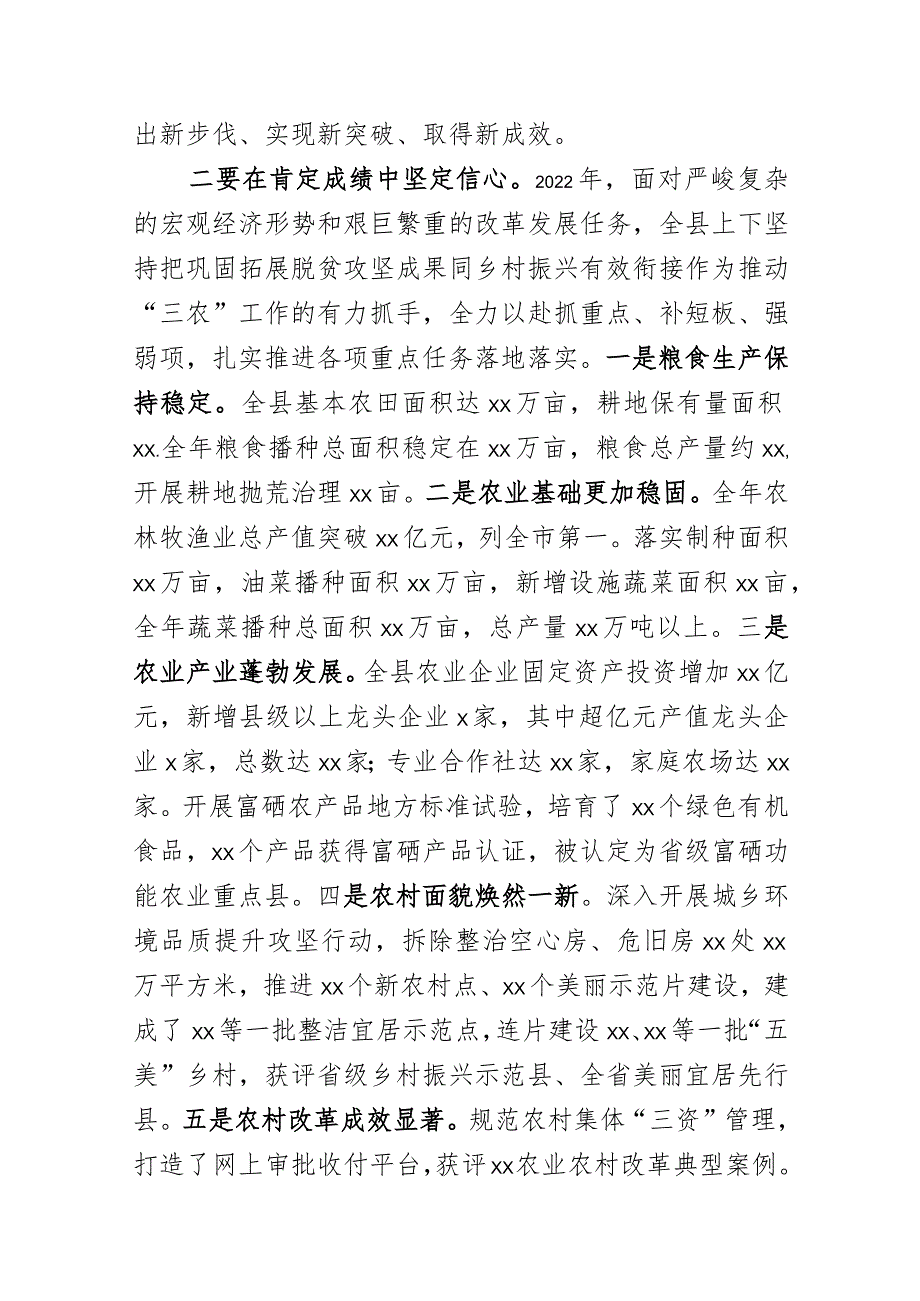 出新步伐、实现新突破、取得新成效。
二要在肯定成绩中坚定信心。2022年，面对严峻复杂
的宏观经济形势和艰巨繁重的改革发展任务，全县上下坚
持把巩固拓展脱贫攻坚成果同乡村振兴有效衔接作为推动
“三农”工作的有力抓手，全力以赴抓重点、补短板、强
弱项，扎实推进各项重点任务落地落实。一是粮食生产保
持稳定。全县基本农田面积达xx万亩，耕地保有量面积
xx.全年粮食播种总面积稳定在xx万亩，粮食总产量约xx,
开展耕地抛荒治理xx亩。二是农业基础更加稳固。全年农
林牧渔业总产值突破xx亿元，列全市第一。落实制种面积
xx万亩，油菜播种面积xx万亩，新增设施蔬菜面积xx亩，
全年蔬菜播种总面积xx万亩，总产量xx万吨以上。三是
农业产业蓬勃发展。全县农业企业固定资产投资增加xx亿
元，新增县级以上龙头企业x家，其中超亿元产值龙头企
业x家，总数达xx家；专业合作社达xx家，家庭农场达xx
家。开展富硒农产品地方标准试验，培育了xx个绿色有机
食品，xx个产品获得富硒产品认证，被认定为省级富硒功
能农业重点县。四是农村面貌焕然一新。深入开展城乡环
境品质提升攻坚行动，拆除整治空心房、危旧房xx处xx
万平方米，推进xx个新农村点、xx个美丽示范片建设，建
成了xx等一批整洁宜居示范点，连片建设xx、xx等一批“五
美”乡村，获评省级乡村振兴示范县、全省美丽宜居先行
县。五是农村改革成效显著。规范农村集体“三资”管理，
打造了网上审批收付平台，获评xx农业农村改革典型案例。